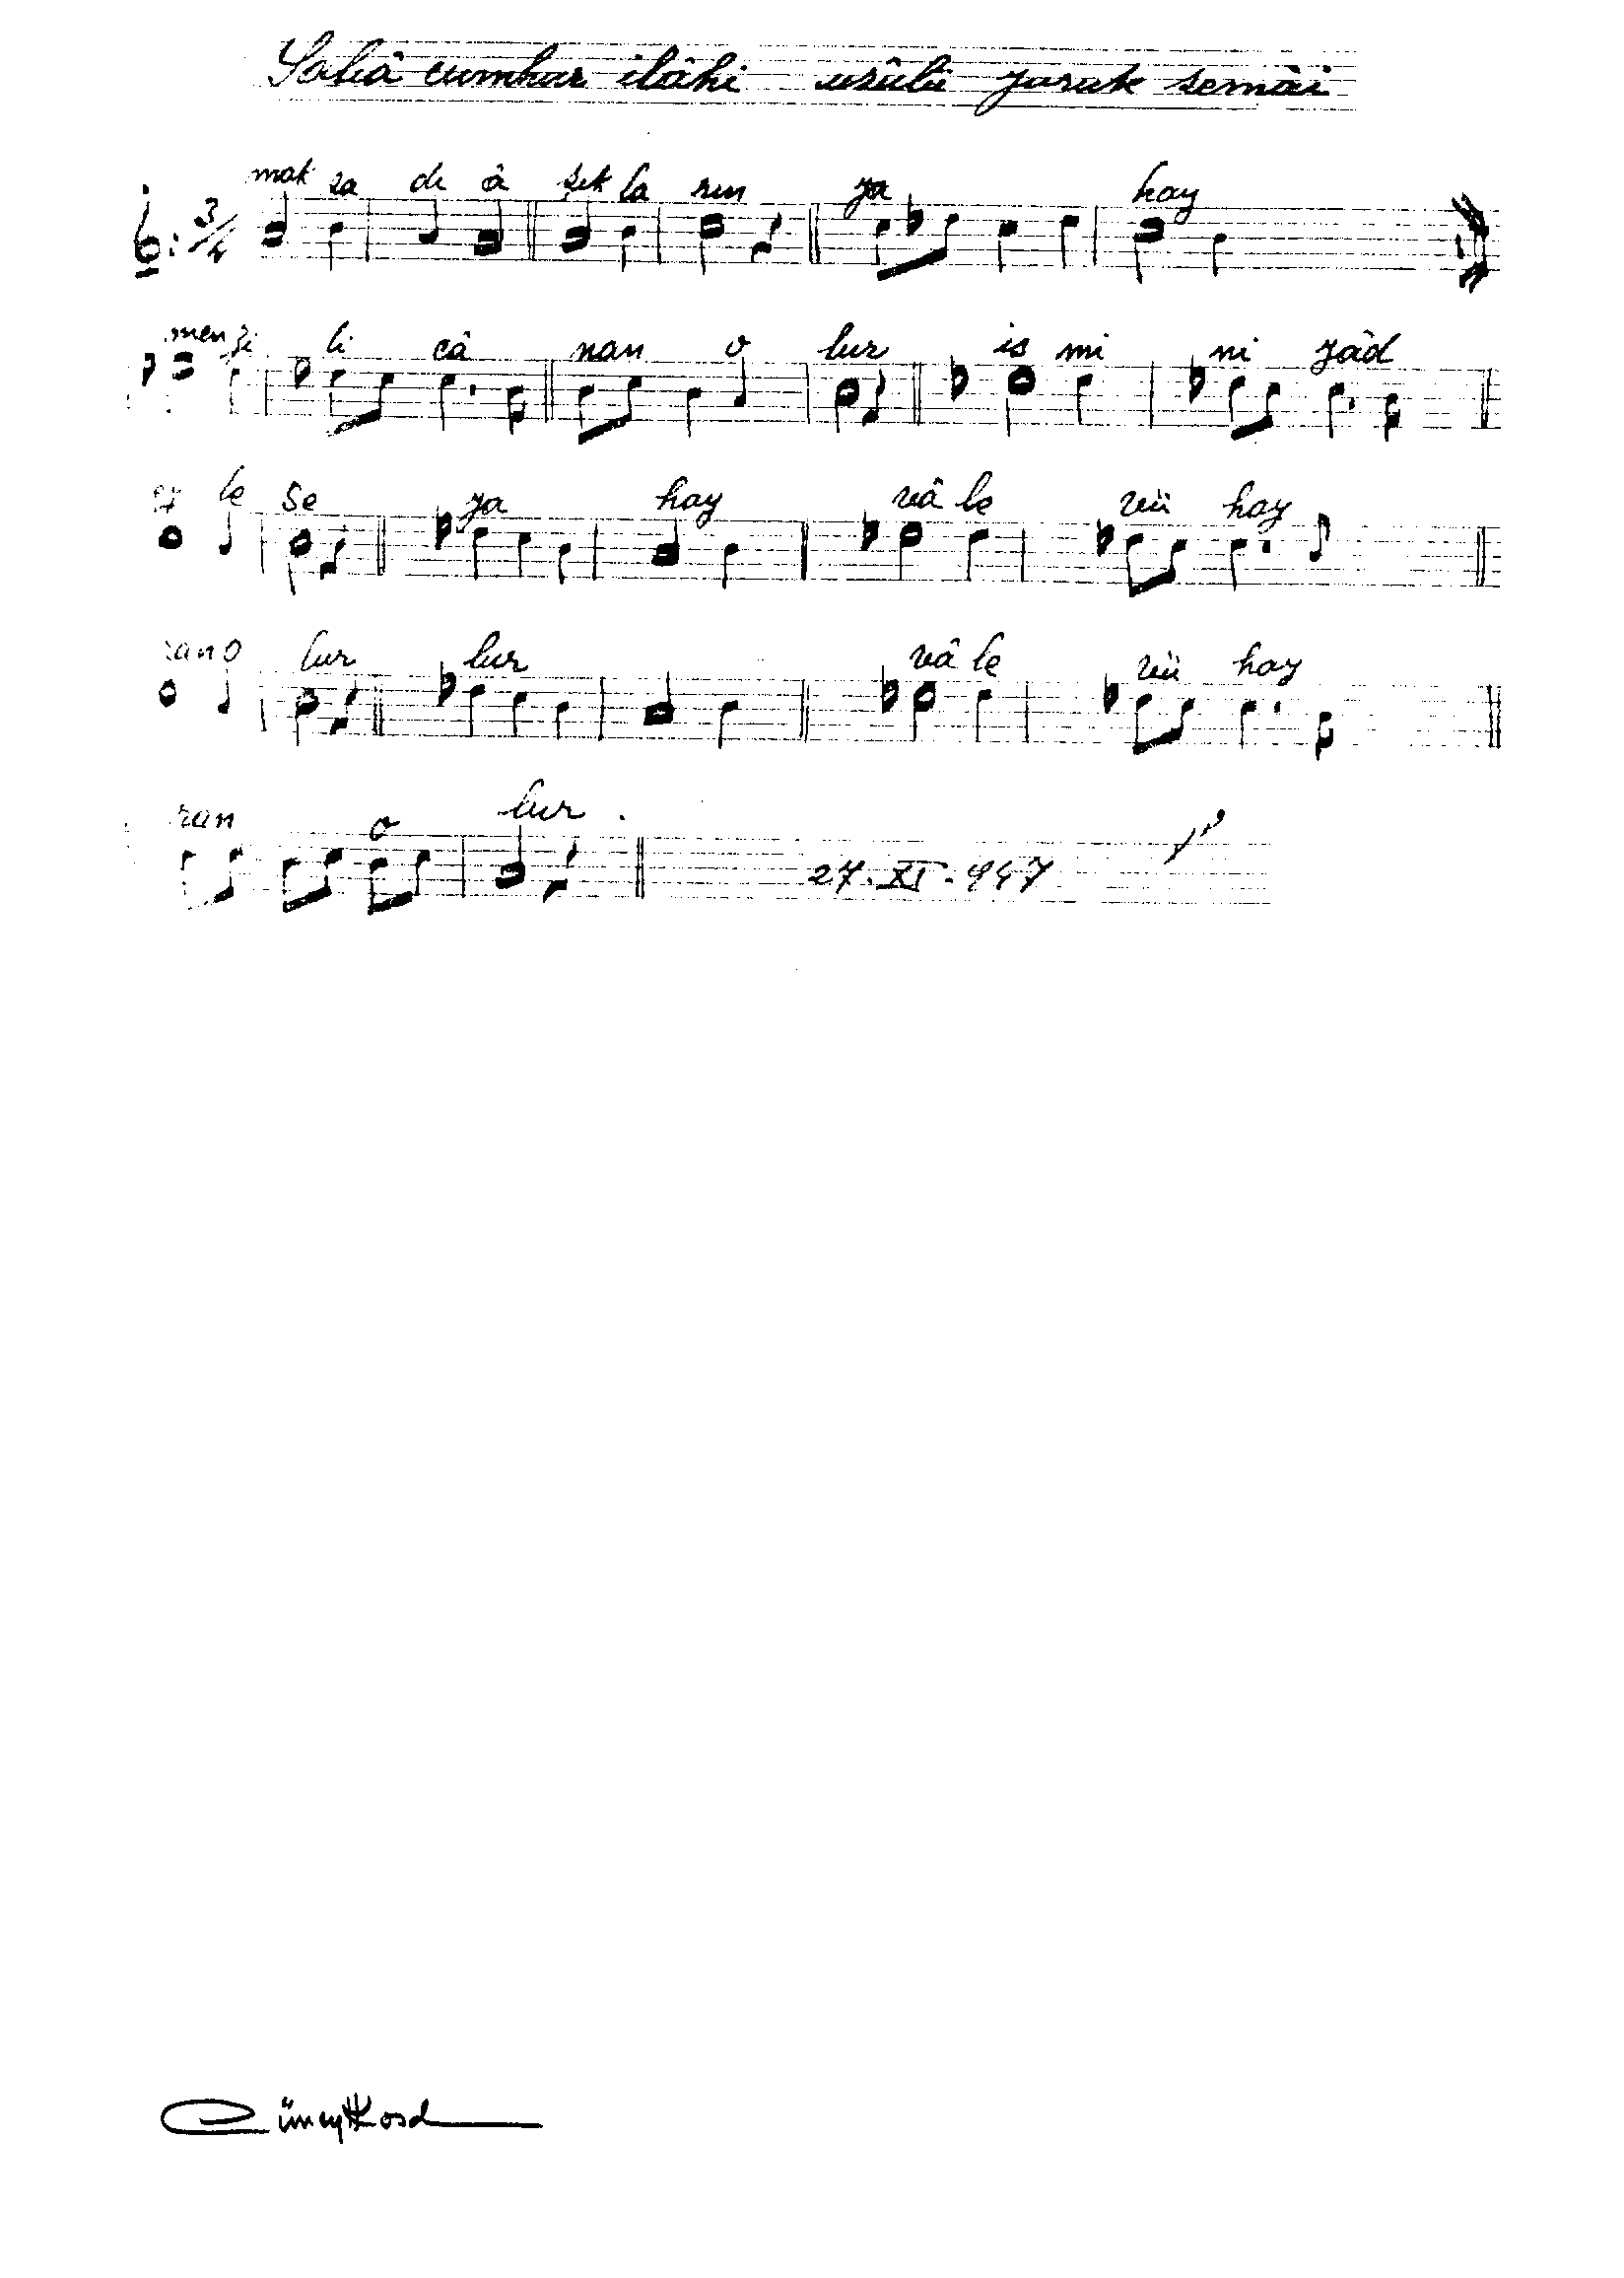 Sabâ cumhur ilâhi usûlü yuruk semâi
3/4 mak sa dı â şık la rın ya hay
men zi li câ nan o lur is mi ni yâd
ey le se ya hay vâ le vü hay
ran o lur lur vâ le vü hay
ran o lur .
27. XI. 947
Cüneyt Kosal